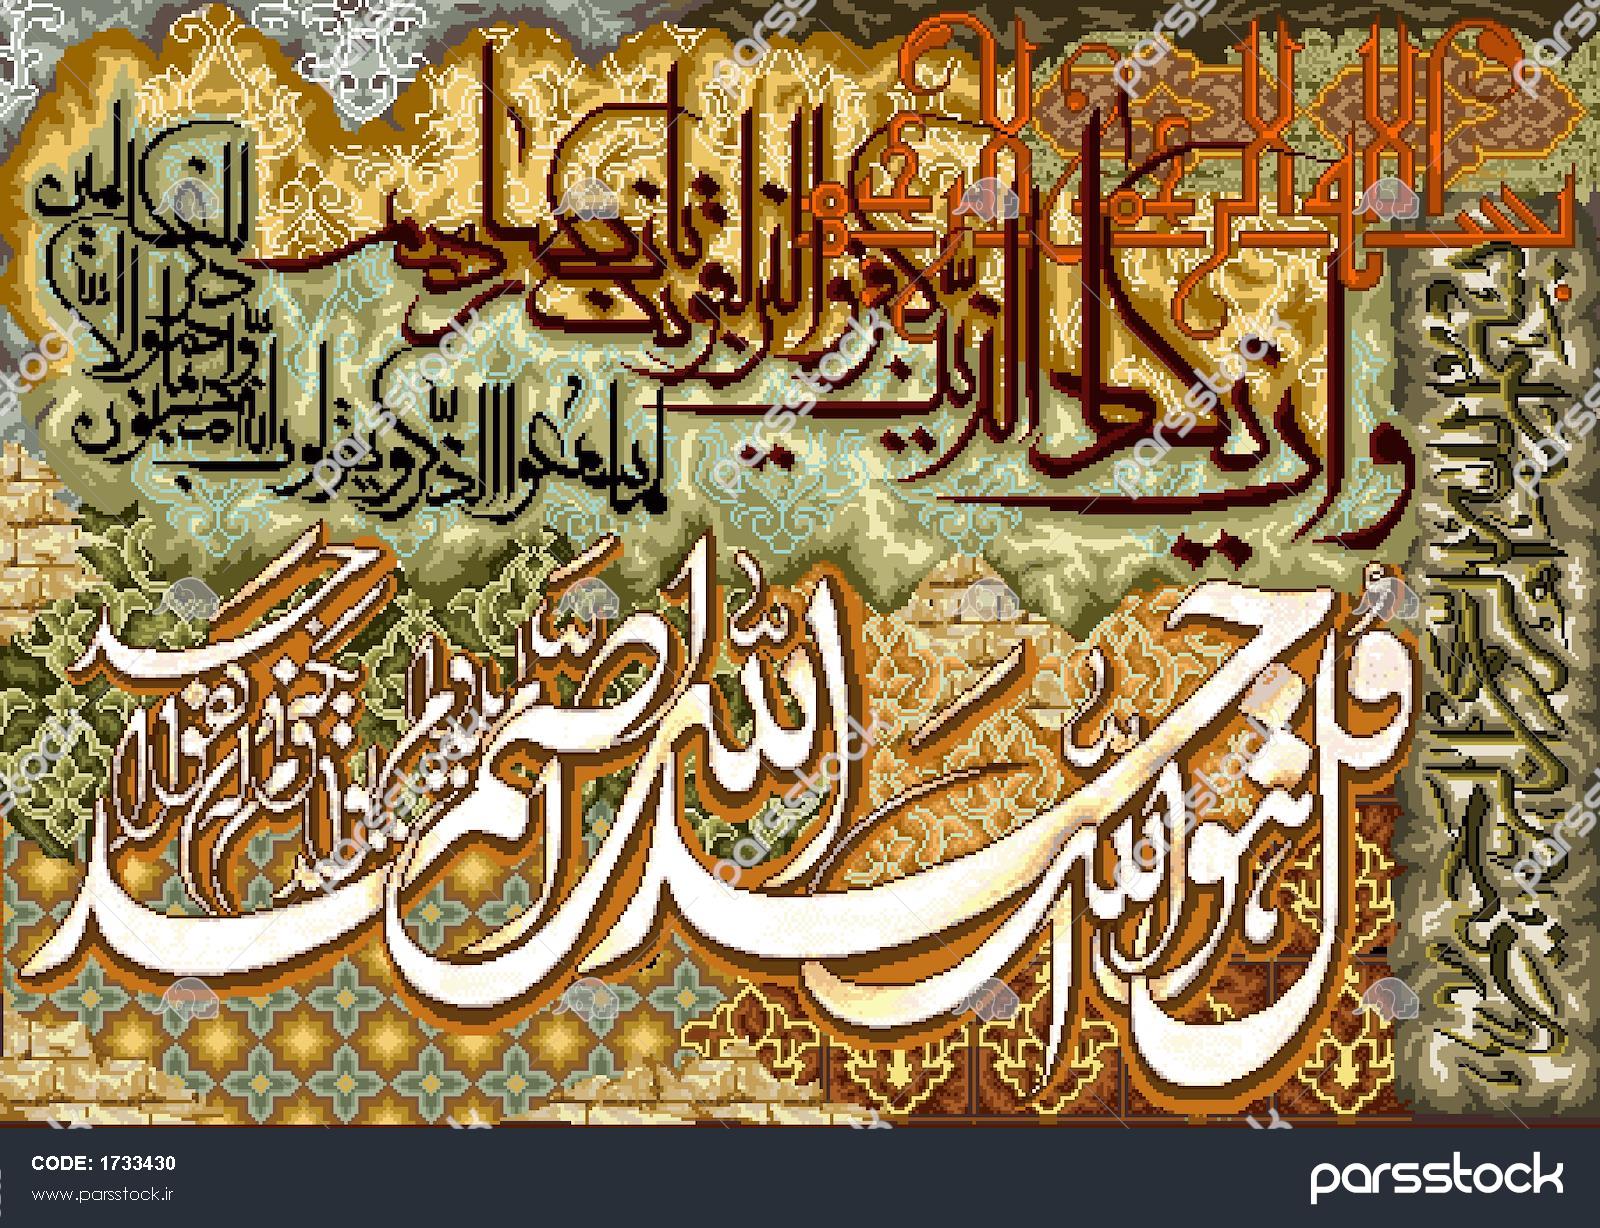 بسم الله الرحمن الرحیم
وان یکاد الذین کفروا لیزلقونک بابصارهم
لما سمعوا الذکر ویقولون انه لمجنون
وما هو الا ذکر للعالمین
قل هو الله احد الله الصمد
لم یلد ولم یولد ولم یکن له کفوا احد
parsstock
CODE: 1733430
www.parsstock.ir